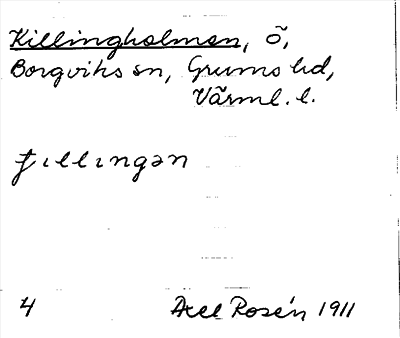 Killingholmen, Ö,
Borgviks sn, Grums hd,
Värml. l.
fıllıngən
4 Axel Rosén 1911